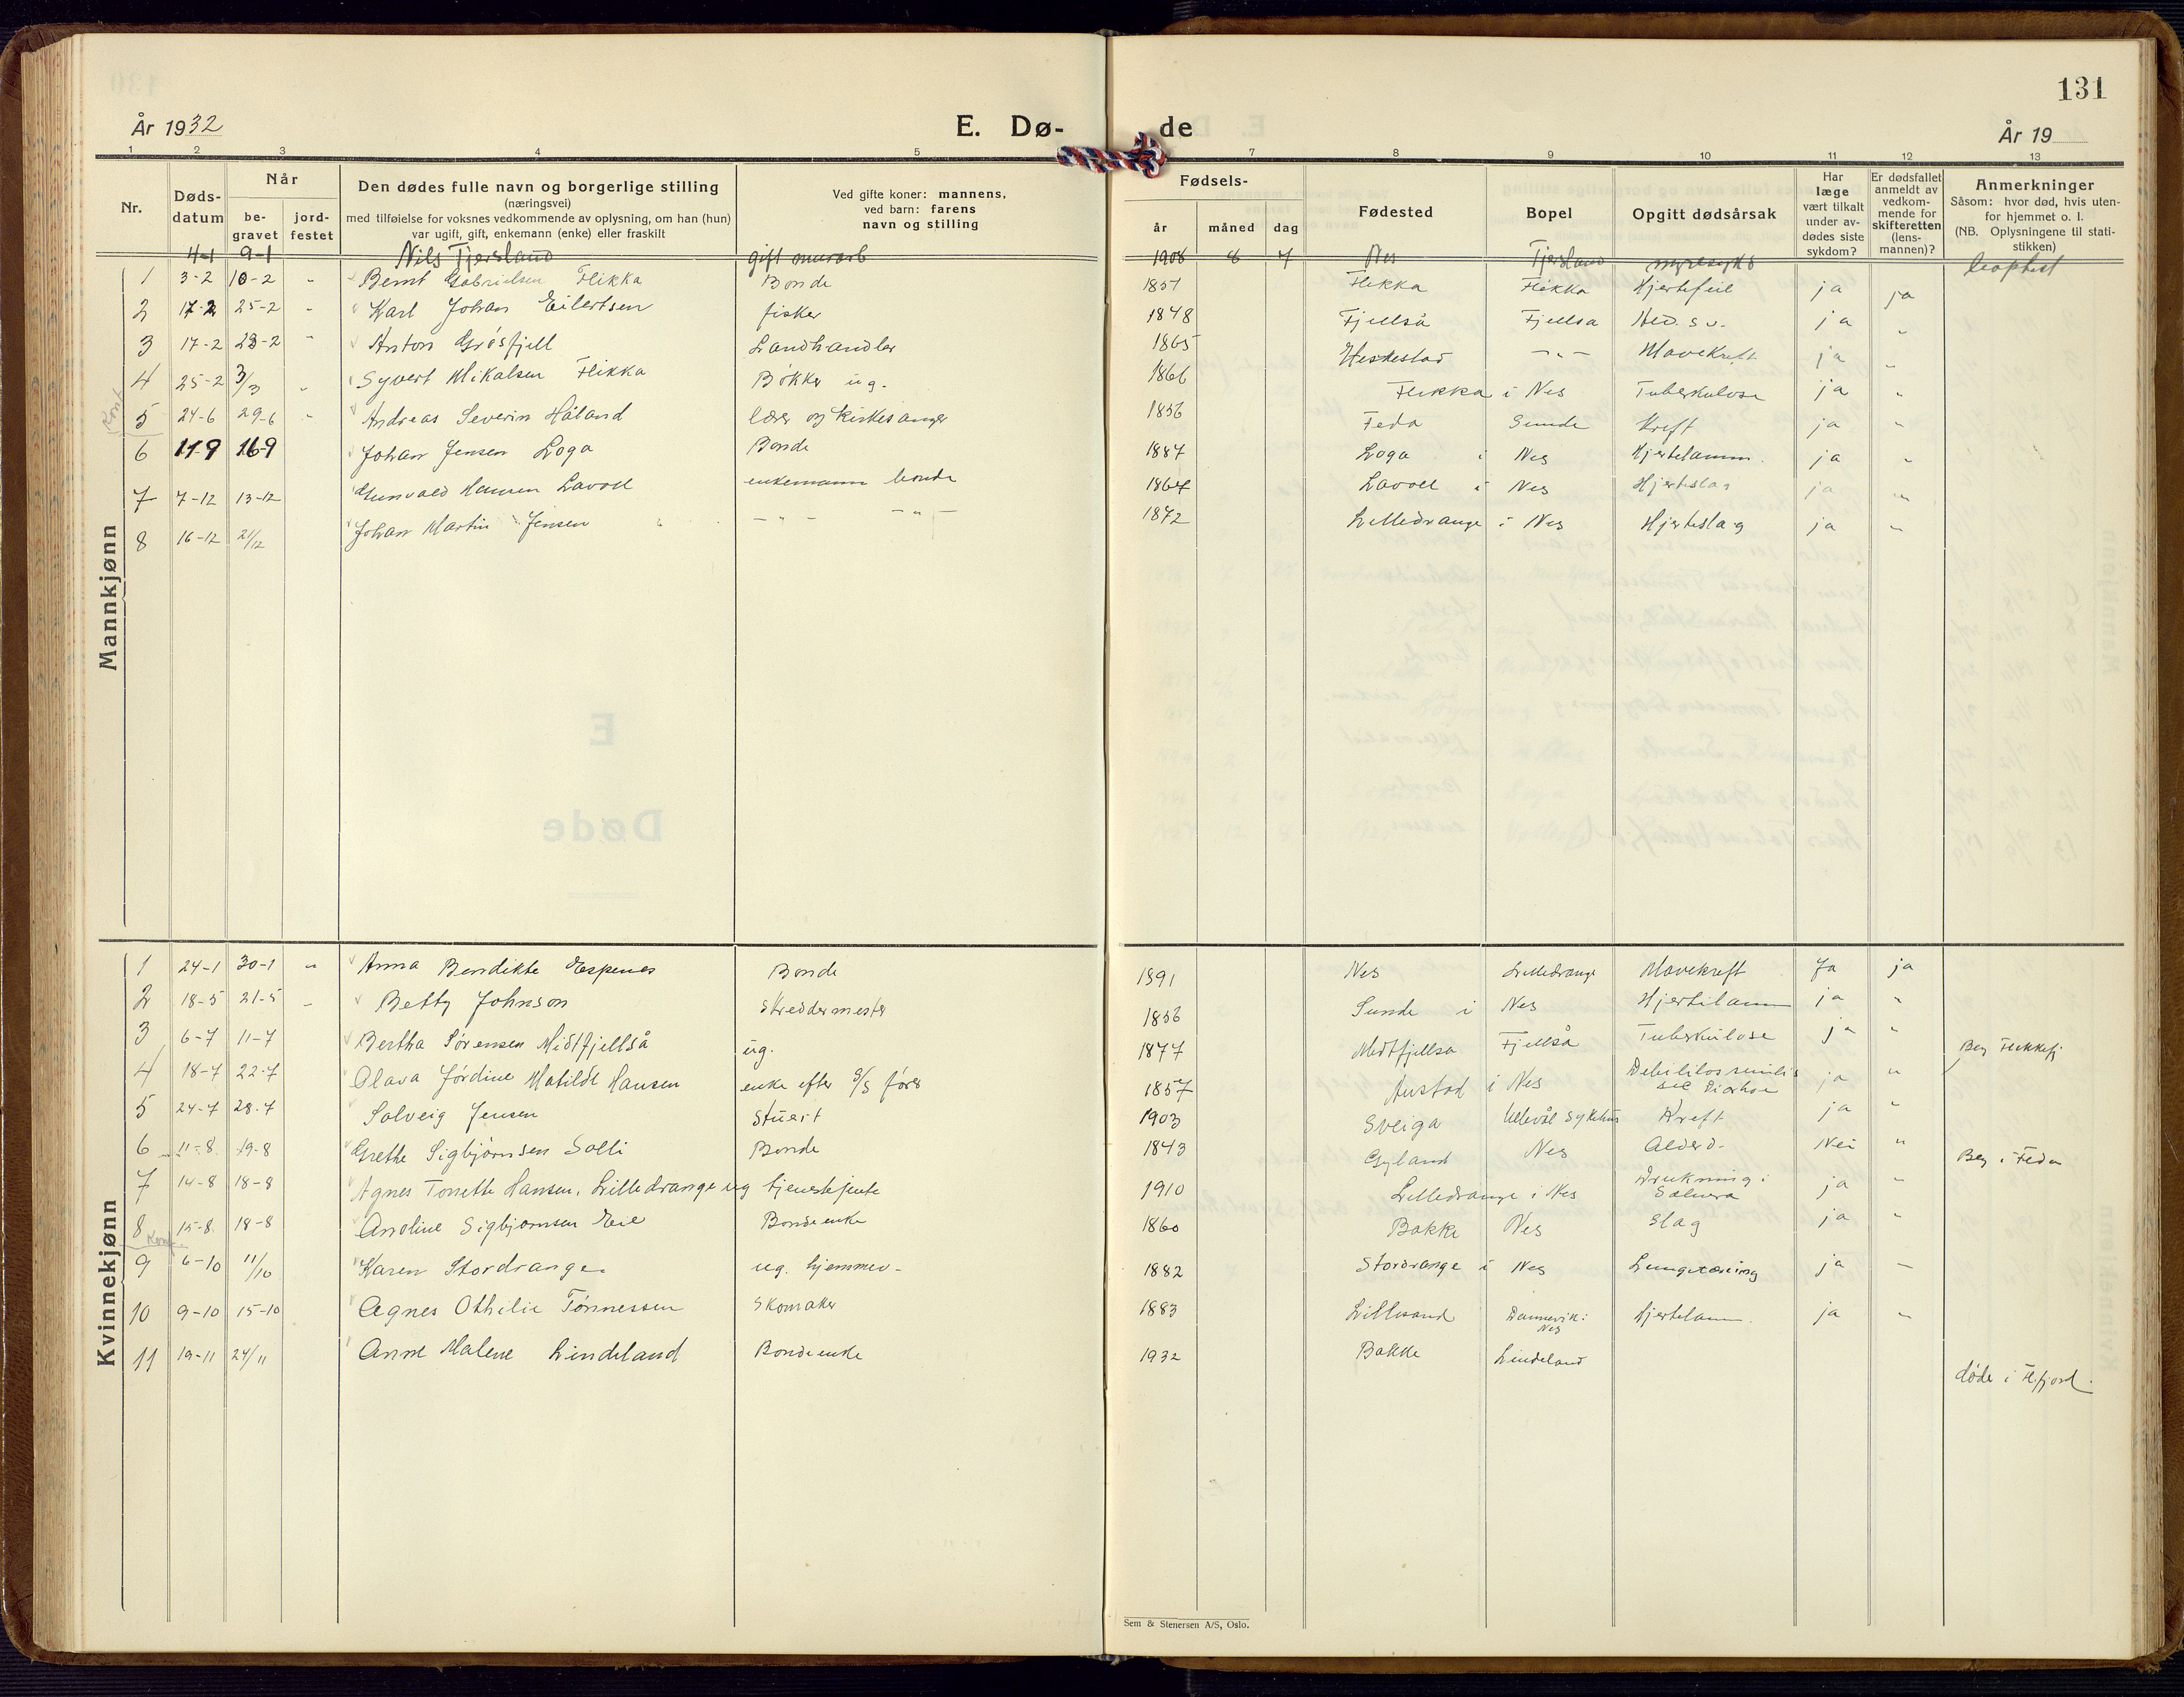 131
År 1932 E. Dø- de År 19
1 2 3 4 5 7 8 9 10 11 12 13
Nr. Døds-datum Når be-gravet jord-festet Den dødes fulle navn og borgerlige stilling (næringsvei) med tilføielse for voksnes vedkommende av oplysning, om han (hun) var ugift, gift, enkemann (enke) eller fraskilt Ved gifte koner: mannens, ved barn: farens navn og stilling Fødsels- år måned dag Fødested Bopel Opgitt dødsårsak Har læge vært tilkalt under av-dødes siste sykdom? Er dødsfallet anmeldt av vedkom-mende for skifteretten (lens-mannen)? Anmerkninger Såsom: hvor død, hvis uten-for hjemmet o. l. (NB. Oplysningene til stati-stikken)
4-1 9-1 Nils Tjersland gift murarb 1908 8 4 Nes Tjersland
Mannkjønn
1 3-2 10-2 " Bernt Gabrielsen Flikka Bonde 1851 Flikka Flikka Hjertefeil ja ja
2 17-2 25-2 " Karl Johan Eilertsen fisker 1848 Fjellså Fjellså ja "
3 17-2 23-2 " Anton Grøsfjell Landhandler 1865 Heskestad - " - Mavekreft ja "
4 25-2 3/3 " Syvert Mikalsen Flikka Bøkker ug. 1866 Flikka i Nes Tuberkulose ja "
5 24-6 29-6 " Andreas Severin Håland lærer og kirkesanger 1856 Feda Sunde Kreft ja "
6 11-9 16-9 Johan Jensen Loga Bonde 1887 Loga i Nes Hjertelamm. ja "
7 7-12 13-12 Gunvald Hansen Lavoll enkemann bonde 1864 Lavoll i Nes Hjerteslag ja "
8 16-12 21/12 Johan Martin Jensen - " - - " - 1872 Lilledrange i Nes Hjerteslag ja "
Kvinnekjønn
1 24-1 30-1 " Anna Bendikte Espenes Bonde 1891 Nes Lilledrange Mavekreft Ja ja
2 18-5 21-5 " Betty Johnson Skreddermester 1856 Sunde i Nes Hjertelamm ja "
3 6-7 11-7 Bertha Sørensen Midtfjellså ug. 1877 Midtfjellså Fjellså Tuberkulose ja " Beg Flekkefj
4 18-7 22-7 Olava Jørdine Matilde Hansen enke efter S/S fører 1857 Austad i Nes ja "
5 24-7 28-7 Solveig Jensen Stuert 1903 Sveiga Ullevål Sykehus Kreft ja "
6 11-8 19-8 Grethe Sigbjørnsen Solli Bonde 1843 Gyland Nes Alderd. Nei " Beg i Feda
7 14-8 18-8 Agnes Tonette Hansen, Lilledrange ug tjenestejente 1910 Lilledrange i Nes Drukning i ja "
8 15-8 18-8 Anoline Sigbjørnsen Eie Bondeenke 1860 Bakke Nes Slag ja "
9 6-10 11/10 Karen Stordrange ug. hjemmev- 1882 Stordrange i Nes Lungetæring ja -
10 9-10 15-10 Agnes Othilie Tønnessen Skomaker 1883 Lillesand Dannevik i Nes Hjertelam ja "
11 19-11 24/11 Anne Malene Lindeland Bondeenke 1932 Bakke Lindeland døde i Fl.fjord.
Sem & Stenersen A/S, Oslo.